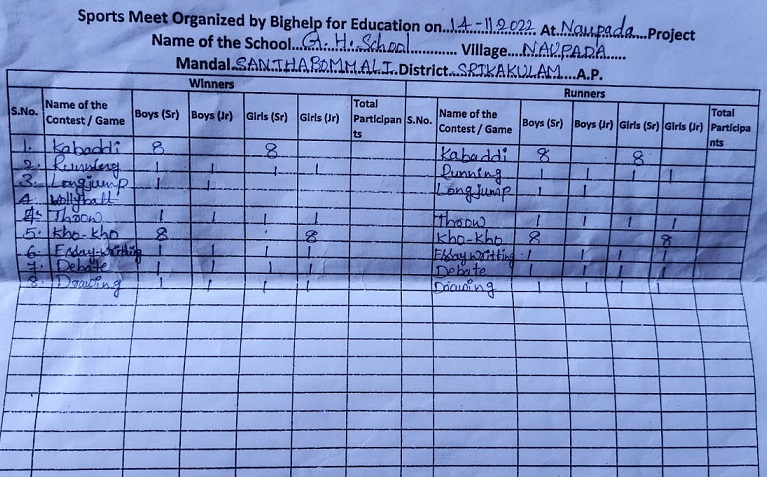 Sports Meet Organized by Bighelp for Education on..14-11-2022. At.Naupada...Project
Name of the School...G.H.School............. Village....NAUPADA......
Mandal.SANTHABOMMALI.District...SRIKAKULAM....A.P.
Winners Runners
S.No. Name of the Contest / Game Boys (Sr) Boys (Jr) Girls (Sr) Girls (Jr) Total Participan ts S.No. Name of the Contest / Game Boys (Sr) Boys (Jr) Girls (Sr) Girls (Jr) Total Participa nts
1. Kabaddi 8 8 Kabaddi 8 8
2. Running 1 1 1 1 Running 1 1 1 1
3. Longjump 1 1 Longjump 1 1
4. Vollyball
4. Thoow 1 1 1 1 Thoow 1 1 1 1
5. Kho-kho 8 8 Kho-kho 8 8
6. Essay-writhing 1 1 1 1 Essay writting 1 1 1 1
7. Debate 1 1 1 1 Debate 1 1 1 1
8. Drawing 1 1 1 1 Drawing 1 1 1 1